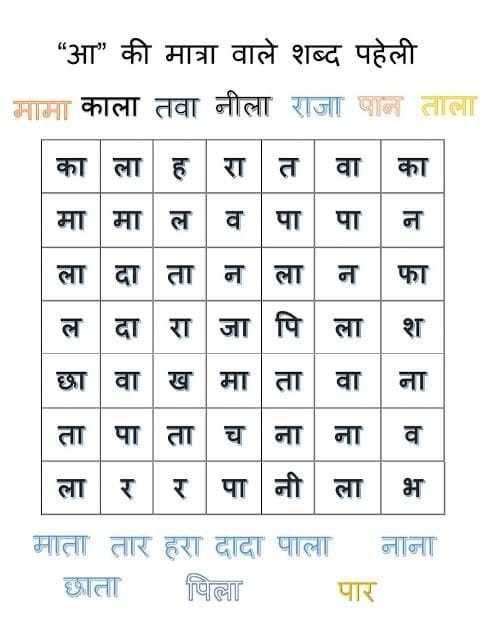 “आ” की मात्रा वाले शब्द पहेली
मामा काला तवा नीला राजा पान ताला
का ला ह रा त वा का
मा मा ल व पा पा न
ला दा ता न ला न फा
ल दा रा जा पि ला श
छा वा ख मा ता वा ना
ता पा ता च ना ना व
ला र र पा नी ला भ
माता तार हरा दादा पाला नाना
छाता पिला पार